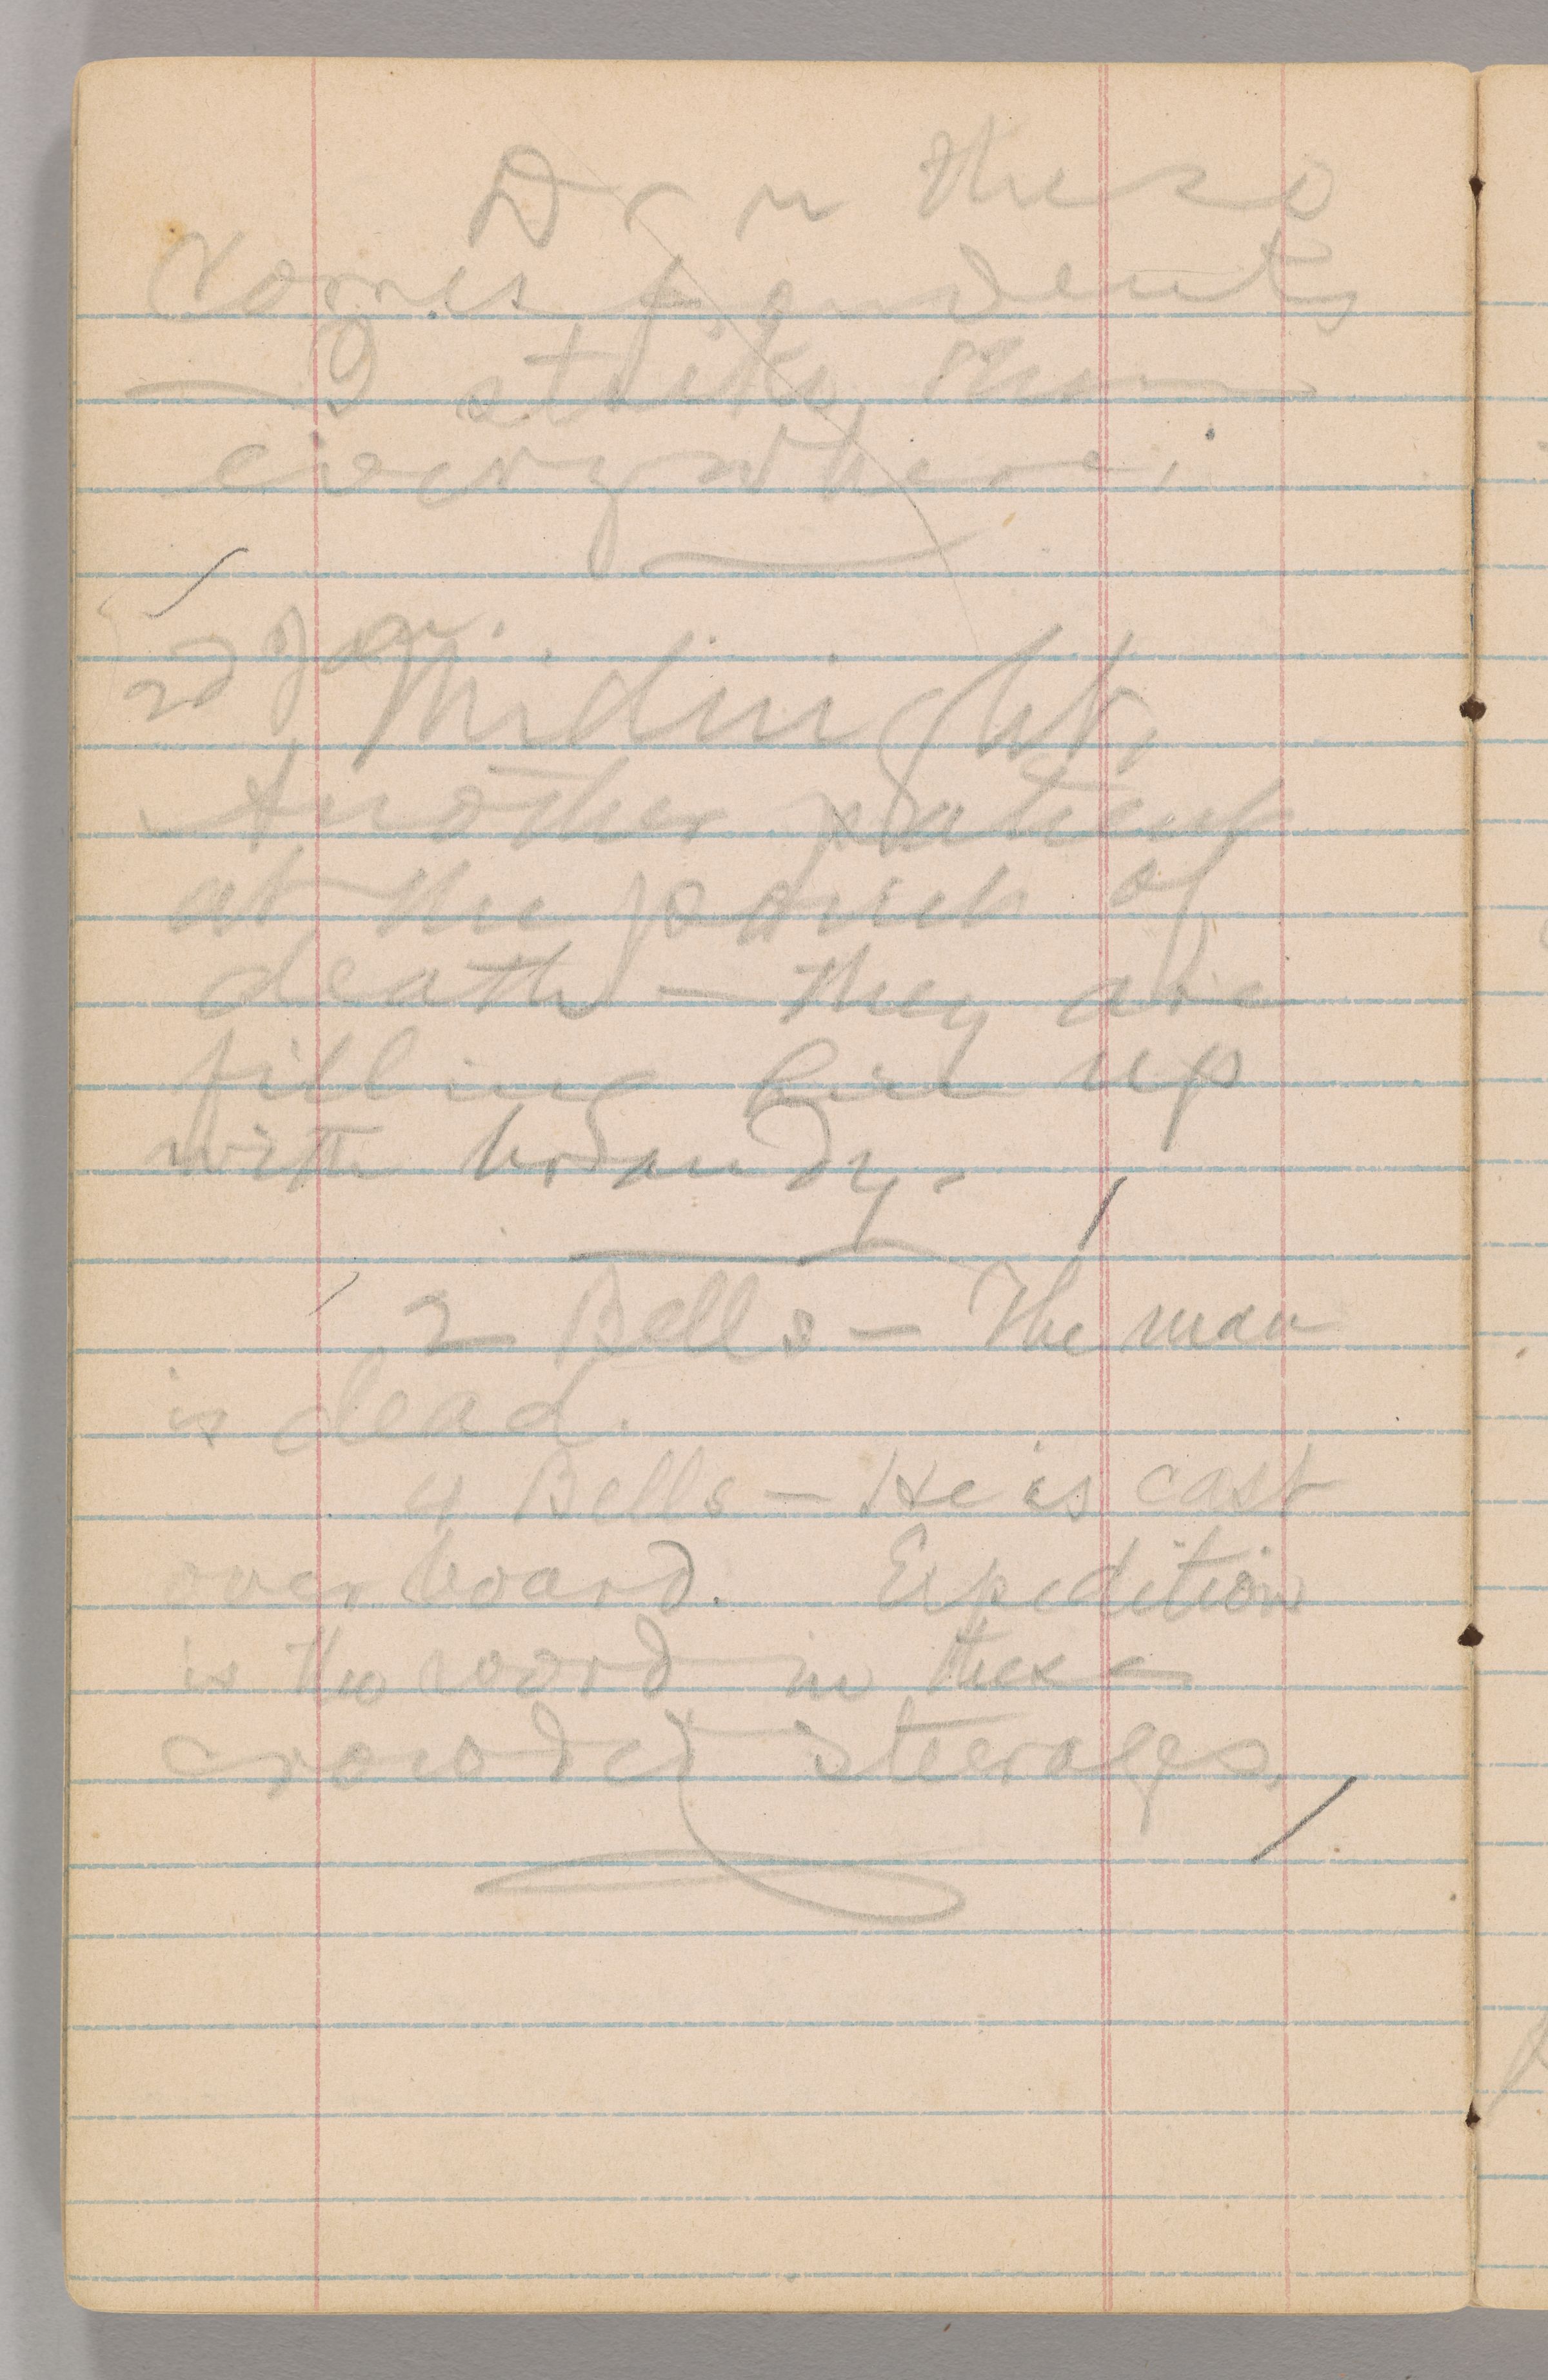 D—n these
correspondents
—I strike them
everywhere.
2d Jan. Midnight,
Another patient
at the point of
death — they are
filling him up
with brandy.
2 Bells — The man
is dead.
4 Bells — He is cast
over board. Expedition
is the word in these
crowded steerages.